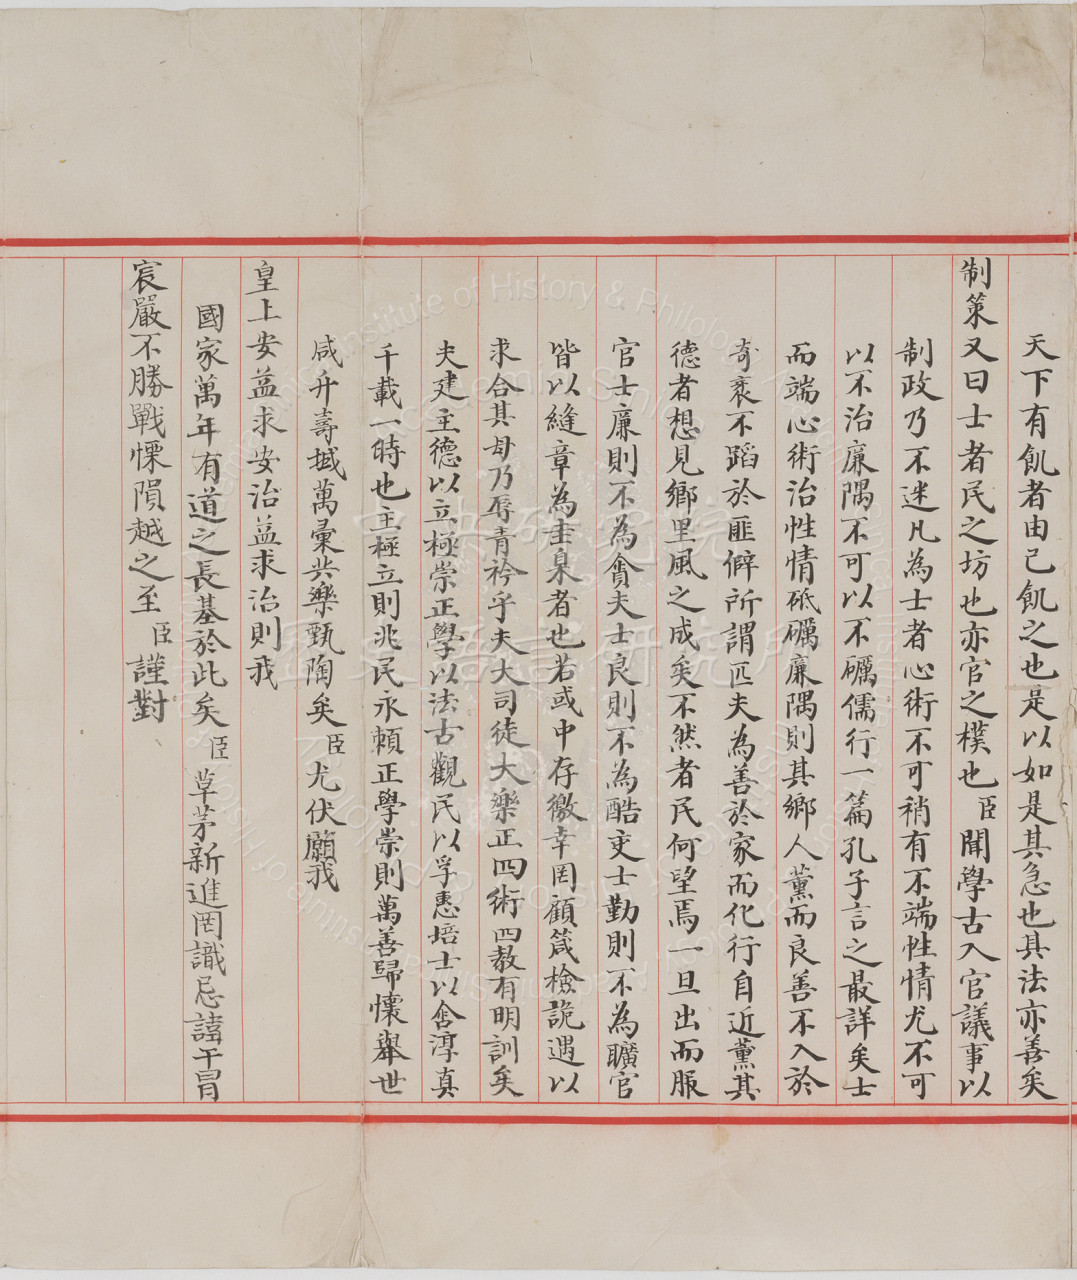 天下有飢者由己飢之也是以如是其急也其法亦善矣
制策又曰士者民之坊也亦官之樸也臣聞學古入官議事以
制政乃不迷凡為士者心術不可稍有不端性情尤不可
以不治廉隅不可以不礪儒行一篇孔子言之最詳矣士
而端心術治性情砥礪廉隅則其鄉人薰而良善不入於
奇衺不蹈於匪僻所謂匹夫為善於家而化行自近薰其
德者想見鄉里風之成矣不然者民何望焉一旦出而服
官士廉則不為貪夫士良則不為酷吏士勤則不為曠官
皆以縫章為圭臬者也若或中存徼幸罔顧箴檢詭遇以
求合其毋乃辱青衿乎夫大司徒大樂正四術四教有明訓矣
夫建主德以立極崇正學以法古觀民以孚惠培士以含淳真
千載一時也主極立則兆民永賴正學崇則萬善歸懷舉世
咸升壽域萬彙共樂甄陶矣臣尤伏願我
皇上安益求安治益求治則我
國家萬年有道之長基於此矣臣草茅新進罔識忌諱干冒
宸嚴不勝戰慄隕越之至臣謹對
Institute of History & Philology
中央研究院
歷史語言研究所